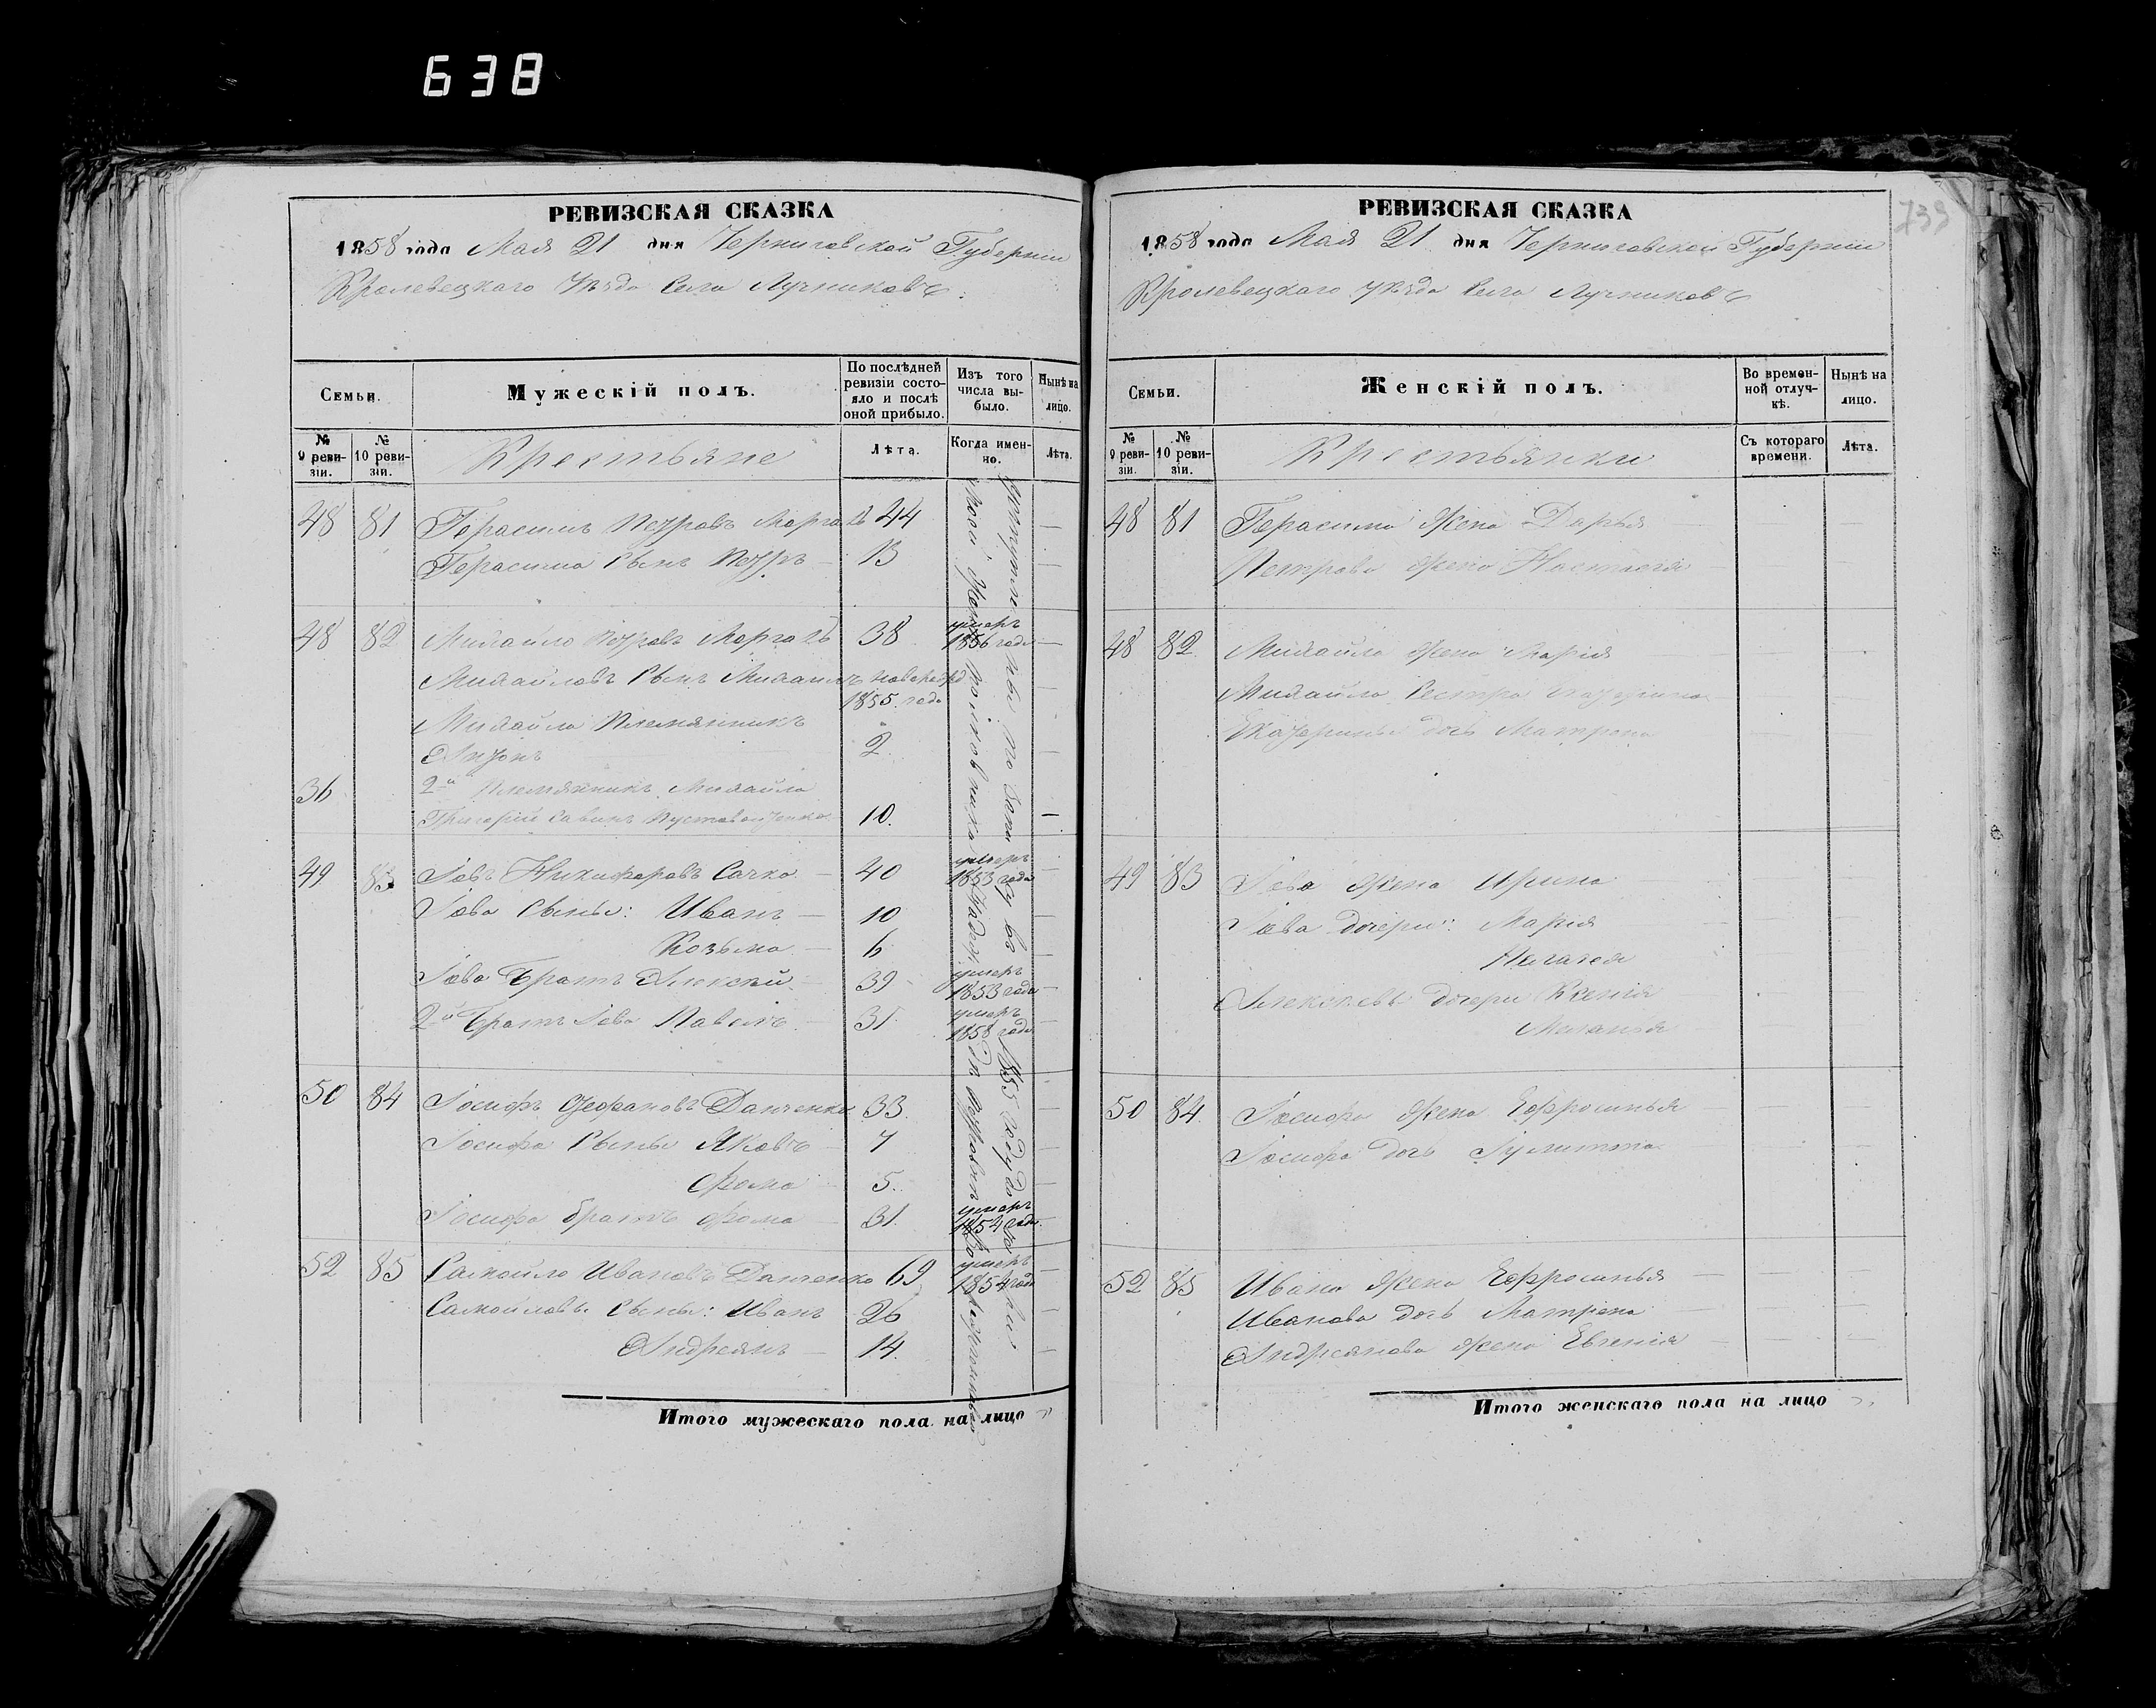 638
РЕВИЗСКАЯ СКАЗКА
1858 года Мая 21 дня Черниговской Губернии
Кролевецкаго Уѣзда Села Лучниковъ.
Семьи.
Мужескій полъ.
По послѣдней ревизіи состояло и послѣ оной прибыло.
Изъ того числа выбыло.
Нынѣ на лицо.
№ 9 ревизіи.
№ 10 ревизіи.
Крестьяне
Лѣта.
Когда именно.
Лѣта.
48 81 Герасимъ Петровъ 44
Герасима Сынъ Петръ 13
48 82 Михайло Петровъ 38 умеръ 1856 года
Михайловъ Сынъ Михаилъ новорожд 1855 года
Михайла Племянникъ
Антонъ 2
36 2й Племянникъ Михайла
Григорій Савинъ 10.
49 83 Іовъ Никифоровъ Сачко 40 умеръ 1853 года
Іова Сыны: Иванъ 10
Козьма 6
Іова Братъ Алексѣй 39 умеръ 1853 года
2й Братъ Іова Павелъ 31 умеръ 1858 года
50 84 Іосифъ Данченко 33.
Іосифа Сыны Яковъ 7
Фома 5.
Іосифа братъ Фома 31. умеръ 1854 года.
52 85 Самойло Ивановъ Данченко 69 умеръ 1854 года
Самойловы Сыны: Иванъ 26
Андреянъ 14.
Итого мужескаго пола на лицо
РЕВИЗСКАЯ СКАЗКА
739
1858 года Мая 21 дня Черниговской Губернии
Кролевецкаго Уѣзда Села Лучниковъ
Семьи.
Женскій полъ.
Во временной отлучкѣ.
Нынѣ на лицо.
№ 9 ревизіи.
№ 10 ревизіи.
Крестьянки
Съ котораго времени.
Лѣта.
48 81 Герасима Жена Дарья
Петрова Жена Настасія
48 82 Михайла Жена Марія
Михайла Сестра
Катерины дочь Матрона
49 83 Іова Жена Ирина
Іова дочери: Марія
Пелагея
дочери Ксенія
Меланья
50 84. Іосифа Жена Ефросинья
Іосифа дочь Іулитта
52 85 Ивана Жена Ефросинья
Иванова дочь Матрена
Андреянова Жена Евгенія
Итого женскаго пола на лицо